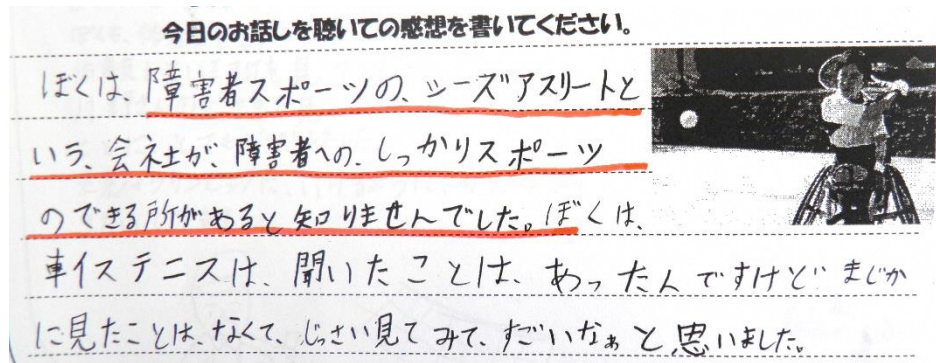 今日のお話しを聴いての感想を書いてください。
ぼくは、障害者スポーツの、シーズアスリートと
いう、会社が、障害者への、しっかりスポーツ
のできる所があると知りませんでした。ぼくは、
車イステニスは、聞いたことは、あったんですけど まじか
に見たことは、なくて、じっさい見てみて、すごいなぁと思いました。